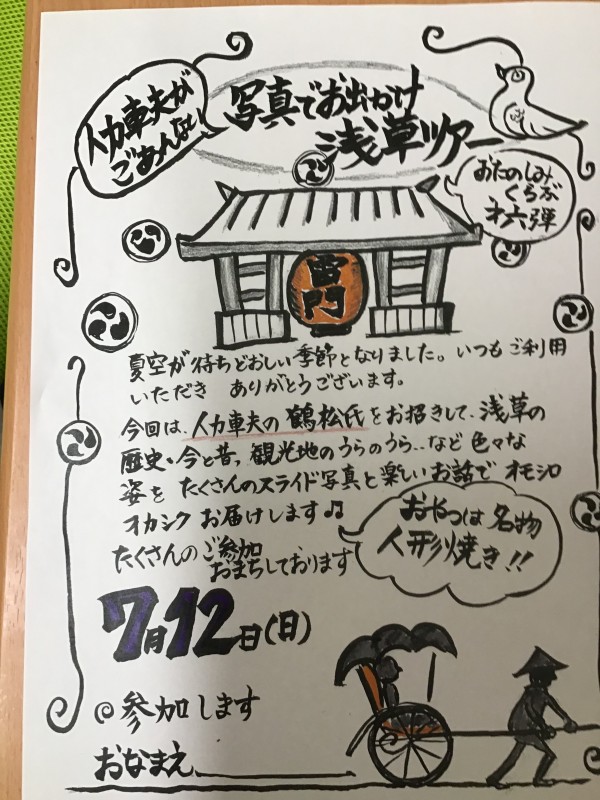 人力車夫が
ごあんない
写真でお出かけ
浅草ツアー
おたのしみ
くらぶ
才六弾
雷門
夏空が待ちどおしい季節となりました。いつもご利用
いただき ありがとうございます。
今回は、人力車夫の鶴松氏をお招きして、浅草の
歴史・今と昔、観光地のうらのうら…など色々な
姿を たくさんのスライド写真と楽しいお話で オモシロ
オカシク お届けします♫
たくさんのご参加
おまちしております
おやつは名物
人形焼き!!
7月12日(日)
◎参加します
おなまえ